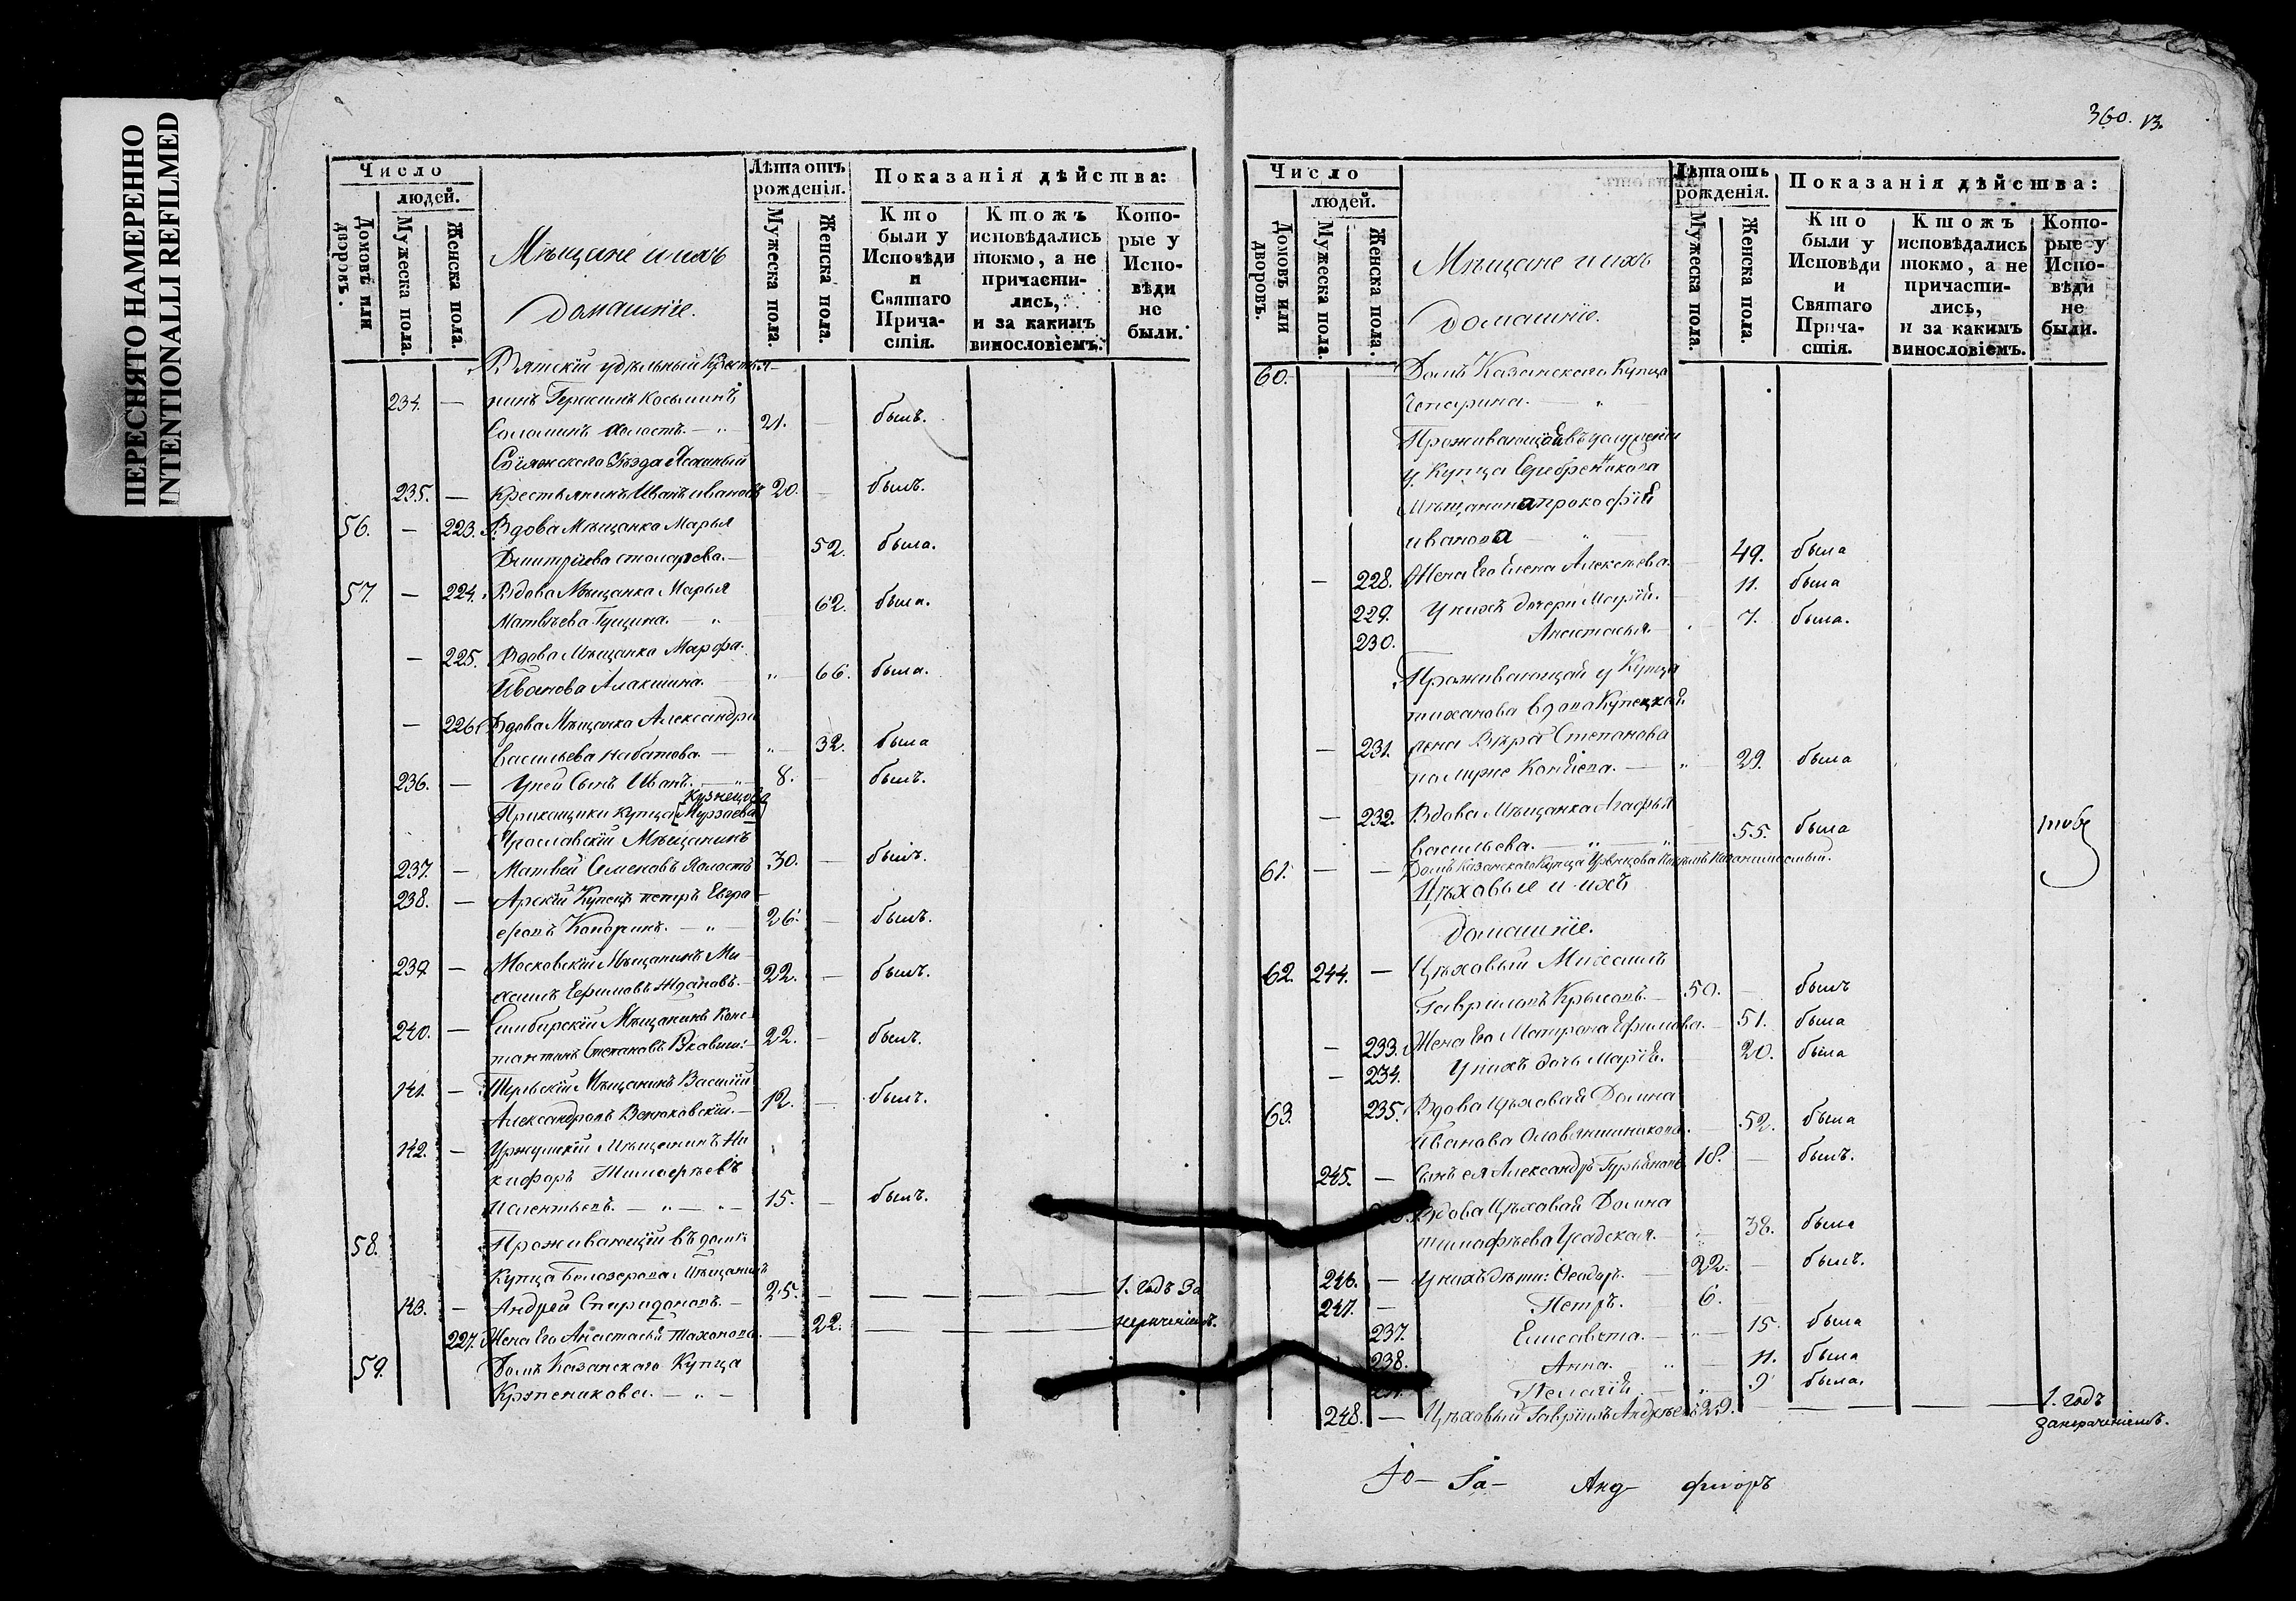 ПЕРЕСНЯТО НАМЕРЕННО
INTENTIONALLI REFILMED
Число
людей.
Домовъ или дворовъ.
Мужеска пола.
Женска пола.
Мѣщане и ихъ
домашніе.
Лѣта отъ рожденія.
Мужеска пола.
Женска пола.
Показанія дѣйства:
Кто были у Исповѣди и Святаго Причастія.
Ктожъ исповѣдались токмо, а не причастились, и за какимъ винословіемъ.
Которые у Исповѣди не были.
Вятскій удѣльный Крестья-
234. — нинъ Герасимъ Косьминъ
Соломинъ холостъ. — 21. — былъ.
уѣзда Ясашный
235. — Крестьянинъ Иванъ Ивановъ 20. — былъ.
56. — 223. Вдова Мѣщанка Марья
Дмитріева Столарева. — 52. была.
57. — 224. Вдова Мѣщанка Марья
Матвѣева Гущина. — 62. была.
— 225. Вдова Мѣщанка Марфа
Иванова Алакшина. — 66. была.
— 226. Вдова Мѣщанка Александра
Васильева Набатова. — 32. была
236. — У ней Сынъ Иванъ. — 8. — былъ.
Кузнецова
Прикащики купца [Мурзаева]
Ярославскій Мѣщанинъ
237. — Матвей Семеновъ Холостъ 30. — былъ.
238. — Арскій Купецъ Петръ Евгра-
фовъ — 26. — былъ.
239 — Московскій Мѣщанинъ Ми-
хаилъ Ефимовъ Ждановъ. — 22. — былъ.
240. — Симбирскій Мѣщанинъ Конс-
тантинъ Степановъ 22. — былъ.
141. — Мѣщанинъ Василій
Александровъ — 12. — былъ.
142. — Уржумскій Мѣщанинъ Ни
кифоръ Тимофѣевъ
— 15. — былъ.
58. Проживающій въ домѣ
Купца Белозерова Мѣщанинъ
143. — Андрей Спиридоновъ. — 25. — — — — 1. годъ За
227. Жена Его Анастасья — 22. — — нерачѣніемъ.
59. Домъ Казанскаго Купца
Крупеникова. —
360. 13.
Число
людей.
Домовъ или дворовъ.
Мужеска пола.
Женска пола.
Мѣщане и ихъ
домашніе.
Лѣта отъ рожденія.
Мужеска пола.
Женска пола.
Показанія дѣйства:
Кто были у Исповѣди и Святаго Причастія.
Ктожъ исповѣдались токмо, а не причастились, и за какимъ винословіемъ.
Которые у Исповѣди не были.
60. Домъ Казанскаго Купца
Чепарина. —
у Купца
Мѣщанина Прокофія
Иванова —
— 228. Жена Его Елена Алексѣева. 49. была
229. У нихъ дочери 11. была
230. Анастасья. 7. была.
Проживающая у Купца
Тиханова Вдова Купецкая
— 231. жена Вѣра Степанова
— 29. была
— 232. Вдова Мѣщанка Агафья
Васильева. — 55. была
61. — — Домъ Казанскаго Купца
Цѣховые и ихъ
домашніе.
62. 244. — Цѣховый Михаилъ
Гавриловъ — 50. — былъ
— 233. Жена Его Матрона Ефимова. — 51. была
— 234. У нихъ дочь Марія. 20. была
63. 235. Вдова Цѣховая Домна
Иванова Оловяншникова. — 52. была
245. — Сынъ ея Александръ 18. — былъ.
Вдова Цѣховая Домна
Тимофѣева — 38. была
246. — У нихъ дѣти: Ѳеодоръ. — 22. — былъ.
247. — Петръ. — 6.
237. Елисавета. — 15. была
238. Анна. — 11. была
Пелагія 9 была.
248. — Цѣховый Гаврилъ Андреевъ 29. — — — — 1. годъ
занерачѣніемъ.